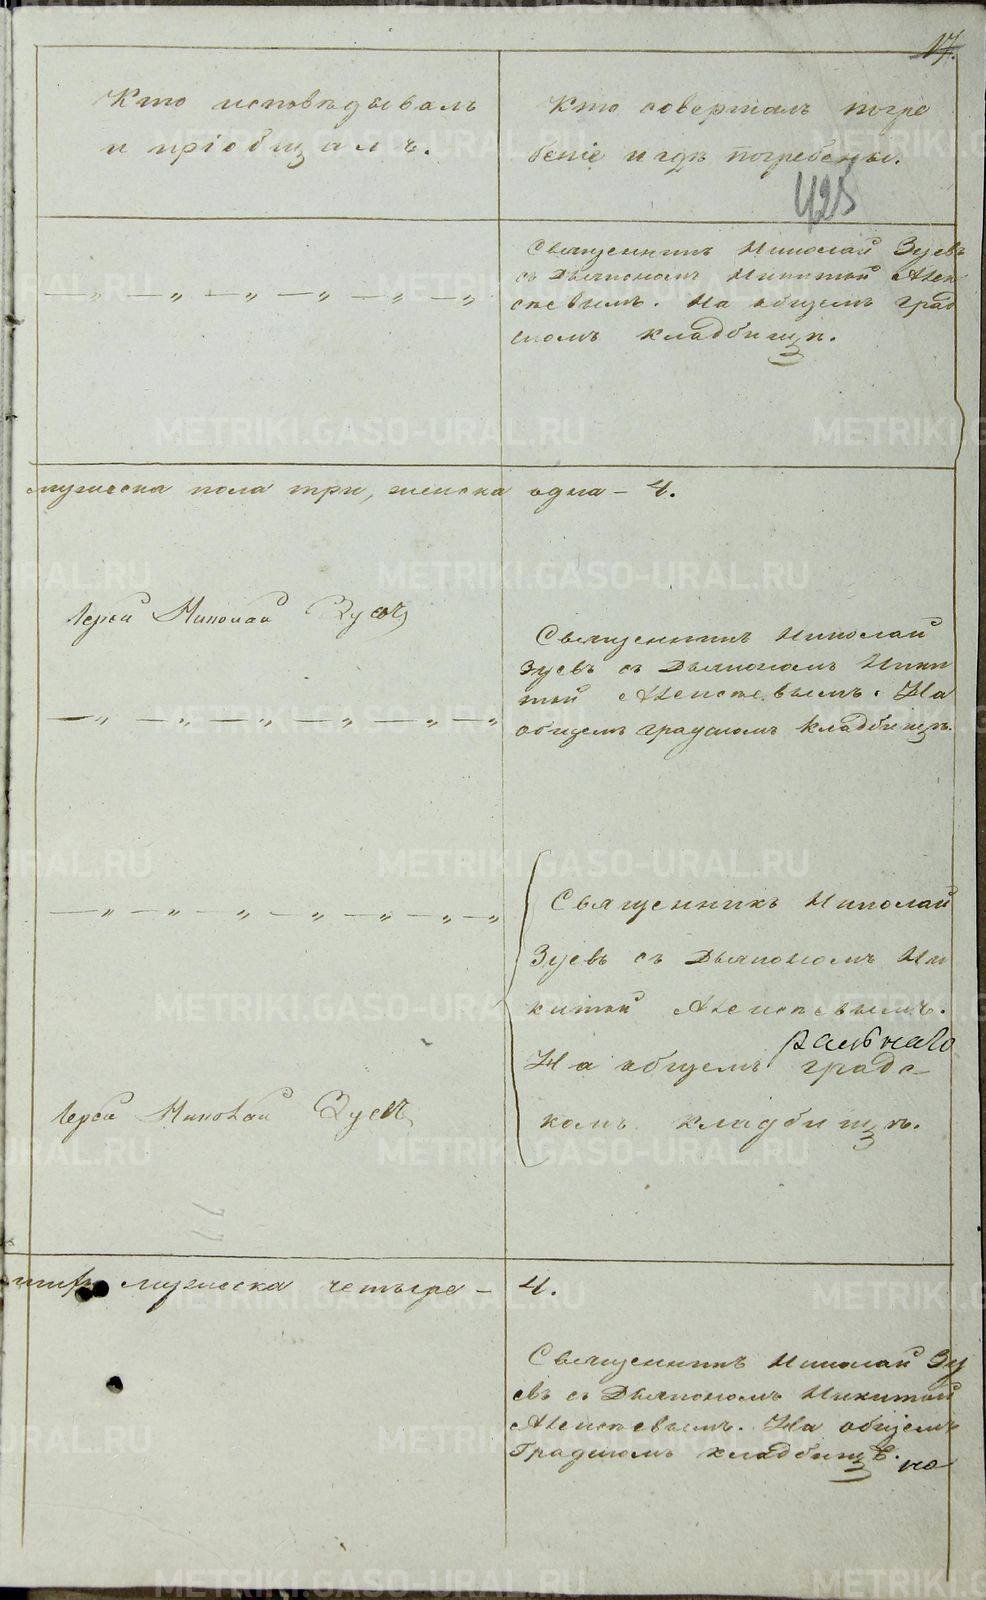 17.
Кто исповѣдывалъ
и пріобщалъ.
Кто совершалъ погре
беніе и гдѣ погребены.
425
Священникъ Николай Зуевъ
съ Дьякономъ Никитой Алек
сѣевымъ. На общемъ град
скомъ кладбищѣ.
— „ — „ — „ — „ — „ — „
мужеска пола три, женска одна – 4.
Іерей Николай Зуевъ
Священникъ Николай
Зуевъ съ Дьякономъ Ники
той Алексѣевымъ. На
общемъ градскомъ кладбищѣ.
— „ — „ — „ — „ — „ — „
— „ — „ — „ — „ — „ — „ — „
Священникъ Николай
Зуевъ съ Дьякономъ Ни
китой Алексѣевымъ.
На общемъ градс-
комъ кладбищѣ.
Іерей Николай Зуевъ
мужеска четыре – 4.
Священникъ Николай Зу
евъ съ Дьякономъ Никитой
Алексѣевымъ. На общемъ
Градскомъ кладбищѣ.
но
METRIKI.GASO-URAL.RU